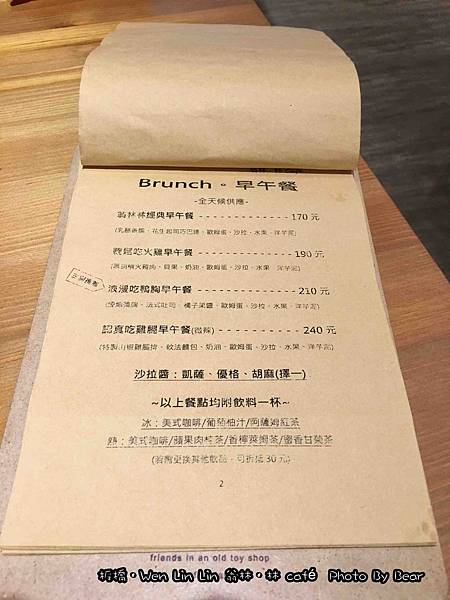 Brunch。早午餐
-全天候供應-
翁林林經典早午餐 - - - - - - - - - - - - - 170 元
(乳酪条燒、花生起司巧巴達、歐姆蛋、沙拉、水果、洋芋泥)
吃火雞早午餐 - - - - - - - - - - - - - - 190 元
(黑胡椒火雞肉、貝果、奶油、歐姆蛋、沙拉、水果 洋芋泥)
浪漫吃鴨胸早午餐 - - - - - - - - - - - - - 210 元
(煙燻鴨胸、法式吐司、橘子果醬、歐姆蛋、沙拉、水果、洋芋泥)
認真吃雞腿早午餐(微辣) - - - - - - - - - - 240 元
雞腿排、奶油、歐姆蛋、沙拉、水果、洋芋泥)
沙拉醬：凱薩、優格、胡麻(擇一)
~以上餐點均附飲料一杯~
冰：美式咖啡/葡萄柚汁/阿薩姆紅茶
熱：美式咖啡/蘋果肉桂茶/香檸葉綠茶/蜜香甘菊茶
(若需更換其他飲品，可折抵 30 元)
2
friends in an old toy shop
板橋。Wen Lin Lin 翁林。林 café Photo By Bear